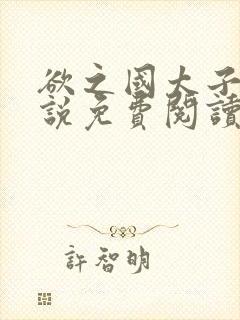 欲之國大子
說免費閱讀
許智明